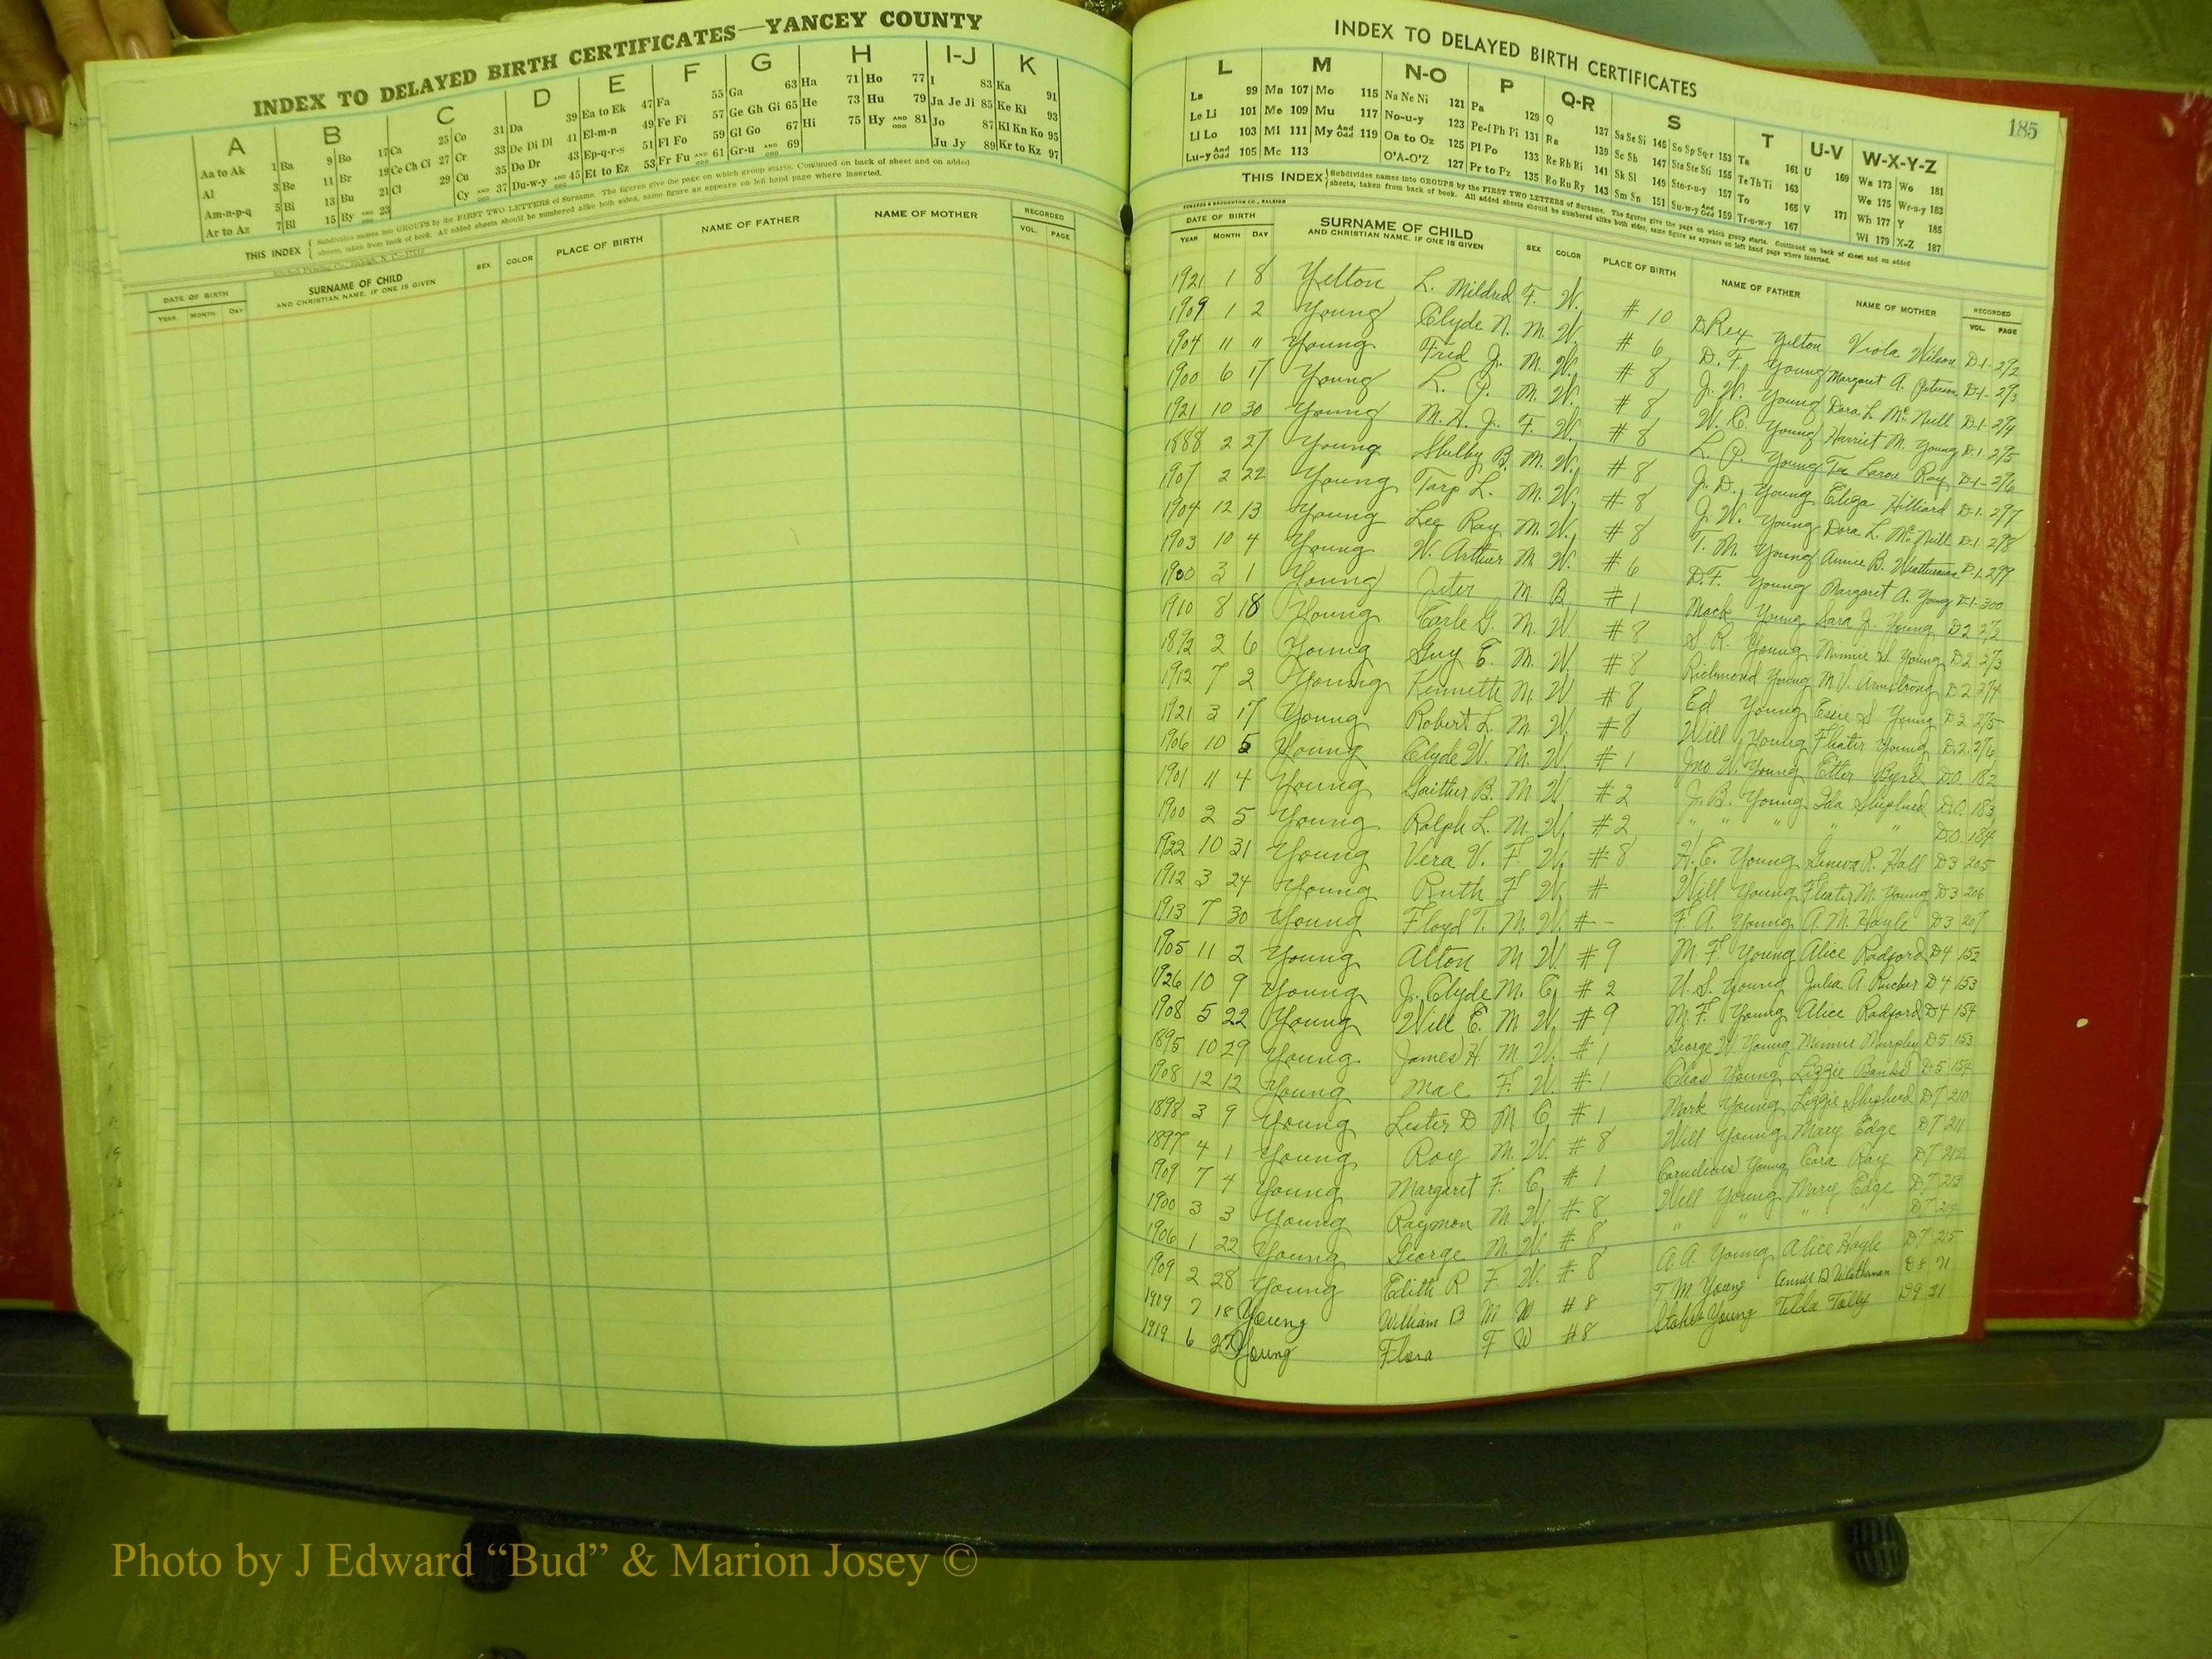 INDEX TO DELAYED BIRTH CERTIFICATES—YANCEY COUNTY
A B C D E F G H I-J K
Aa to Ak 1 Ba 9 Bo 17 Ca 25 Co 31 Da 39 Ea to Ek 47 Fa 55 Ga 63 Ha 71 Ho 77 I 83 Ka 91
Al 3 Be 11 Br 19 Ce Ch Ci 27 Cr 33 De Di Dl 41 El-m-n 49 Fe Fi 57 Ge Gh Gi 65 He 73 Hu 79 Ja Je Ji 85 Ke Ki 93
Am-n-p-q 5 Bi 13 Bu 21 Cl 29 Cu 35 Do Dr 43 Ep-q-r-s 51 Fl Fo 59 Gl Go 67 Hi 75 Hy AND ODD 81 Jo 87 Kl Kn Ko 95
Ar to Az 7 Bl 15 By AND ODD 23 Cy AND ODD 37 Du-w-y AND ODD 45 Et to Ez 53 Fr Fu AND ODD 61 Gr-u AND ODD 69 Ju Jy 89 Kr to Kz 97
THIS INDEX { Subdivides names into GROUPS by the FIRST TWO LETTERS of Surname. The figures give the page on which group starts. Continued on back of sheet and on added
sheets, taken from back of book. All added sheets should be numbered alike both sides, same figure as appears on left hand page where inserted.
DATE OF BIRTH SURNAME OF CHILD SEX COLOR PLACE OF BIRTH NAME OF FATHER NAME OF MOTHER RECORDED
YEAR MONTH DAY AND CHRISTIAN NAME, IF ONE IS GIVEN VOL. PAGE
INDEX TO DELAYED BIRTH CERTIFICATES
185
L M N-O P Q-R S T U-V W-X-Y-Z
La 99 Ma 107 Mo 115 Na Ne Ni 121 Pa 129 Q 137 Sa Se Si 145 So Sp Sq-r 153 Ta 161 U 169 Wa 173 Wo 181
Le Li 101 Me 109 Mu 117 No-u-y 123 Pe-f Ph Pi 131 Ra 139 Sc Sh 147 Sta Ste Sti 155 Te Th Ti 163 We 175 Wr-u-y 183
Ll Lo 103 Mi 111 My And Odd 119 Oa to Oz 125 Pl Po 133 Re Rh Ri 141 Sk Sl 149 Sto-r-u-y 157 To 165 V 171 Wh 177 Y 185
Lu-y And Odd 105 Mc 113 O'A-O'Z 127 Pr to Pz 135 Ro Ru Ry 143 Sm Sn 151 Su-w-y And Odd 159 Tr-u-w-y 167 Wi 179 X-Z 187
THIS INDEX { Subdivides names into GROUPS by the FIRST TWO LETTERS of Surname. The figures give the page on which group starts. Continued on back of sheet and on added
sheets, taken from back of book. All added sheets should be numbered alike both sides, same figure as appears on left hand page where inserted.
EDWARDS & BROUGHTON CO., RALEIGH
DATE OF BIRTH SURNAME OF CHILD SEX COLOR PLACE OF BIRTH NAME OF FATHER NAME OF MOTHER RECORDED
YEAR MONTH DAY AND CHRISTIAN NAME, IF ONE IS GIVEN VOL. PAGE
1921 1 8 Yelton L. Mildred F. W. # 10 D. Rex Yelton Viola Wilson D-1- 292
1909 1 2 Young Clyde N. M. W. # 6 D. F. Young Margaret A. Peterson D-1- 293
1904 11 11 Young Fred J. M. W. # 8 J. W. Young Dora L. McNeill D-1- 294
1900 6 17 Young L. P. M. W. # 8 W. C. Young Harriet M. Young D-1- 295
1921 10 30 Young M. H. J. F. W. # 8 L. P. Young Ray D-1- 296
1888 2 27 Young Shelby B. M. W. # 8 J. D. Young Eliza Hilliard D-1- 297
1907 2 22 Young Tarp L. M. W. # 8 J. W. Young Dora L. McNeill D-1- 298
1904 12 13 Young Lee Ray M. W. # 8 T. M. Young Annie B. D-1- 299
1903 10 4 Young W. Arthur M. W. # 6 D. F. Young Margaret A. Young D-1- 300
1900 3 1 Young Jeter M B # 1 Mack Young Sara J. Young D2 272
1910 8 18 Young Earle G. M. W. # 8 S. R. Young Minnie S. Young D2 273
1892 2 6 Young Guy E. M. W. # 8 Richmond Young M. V. Armstrong D2 274
1912 7 2 Young Kenneth M. W # 8 Ed Young Essie S Young D2 275
1921 3 17 Young Robert L. M. W. # 8 Will Young Fleater Young D.2. 276
1906 10 5 Young Clyde W. M. W. # 1 Jno W. Young Etter Byrd D.O. 182
1901 11 4 Young Gaither B. M. W # 2 J. B. Young Ida Shepherd D.O. 183
1900 2 5 Young Ralph L. M. W. # 2 " " " " " D.O. 184
1922 10 31 Young Vera V. F. W. # 8 H. E. Young Geneva R. Hall D3 205
1912 3 24 Young Ruth F W. # Will Young Fleater M. Young D3 206
1913 7 30 Young Floyd T. M. W. # - F. A. Young A. M. Hoyle D3 207
1905 11 2 Young Alton M W. # 9 M. F. Young Alice Radford D4 152
1926 10 9 Young J. Clyde M. C. # 2 U. S. Young Julia A. Rucker D4 153
1908 5 22 Young Will E. M W. # 9 M. F. Young Alice Radford D4 154
1895 10 29 Young James H. M. W. # 1 George W Young Minnie Murphy D5 153
1908 12 12 Young Mae F. W. # 1 Chas Young Lizzie Banks D5 154
1898 3 9 Young Lester D M. C # 1 Mark Young Lizzie Shepherd D7 210
1897 4 1 Young Roy M. W. # 8 Will Young Mary Edge D7 211
1909 7 4 Young Margaret F. C. # 1 Cornelious Young Cora Ray D7 212
1900 3 3 Young Raymon M W. # 8 Will Young Mary Edge D7 213
1906 1 22 Young George M. W. # 8 " " " " D7 214
1909 2 28 Young Edith R F. W. # 8 A. A. Young Alice Hoyle D7 215
1909 7 18 Young William B M W # 8 T M Young Annie B D8 71
1919 6 27 Young Flora F W # 8 Young Tilda Tolly D9 31
Photo by J Edward “Bud” & Marion Josey ©